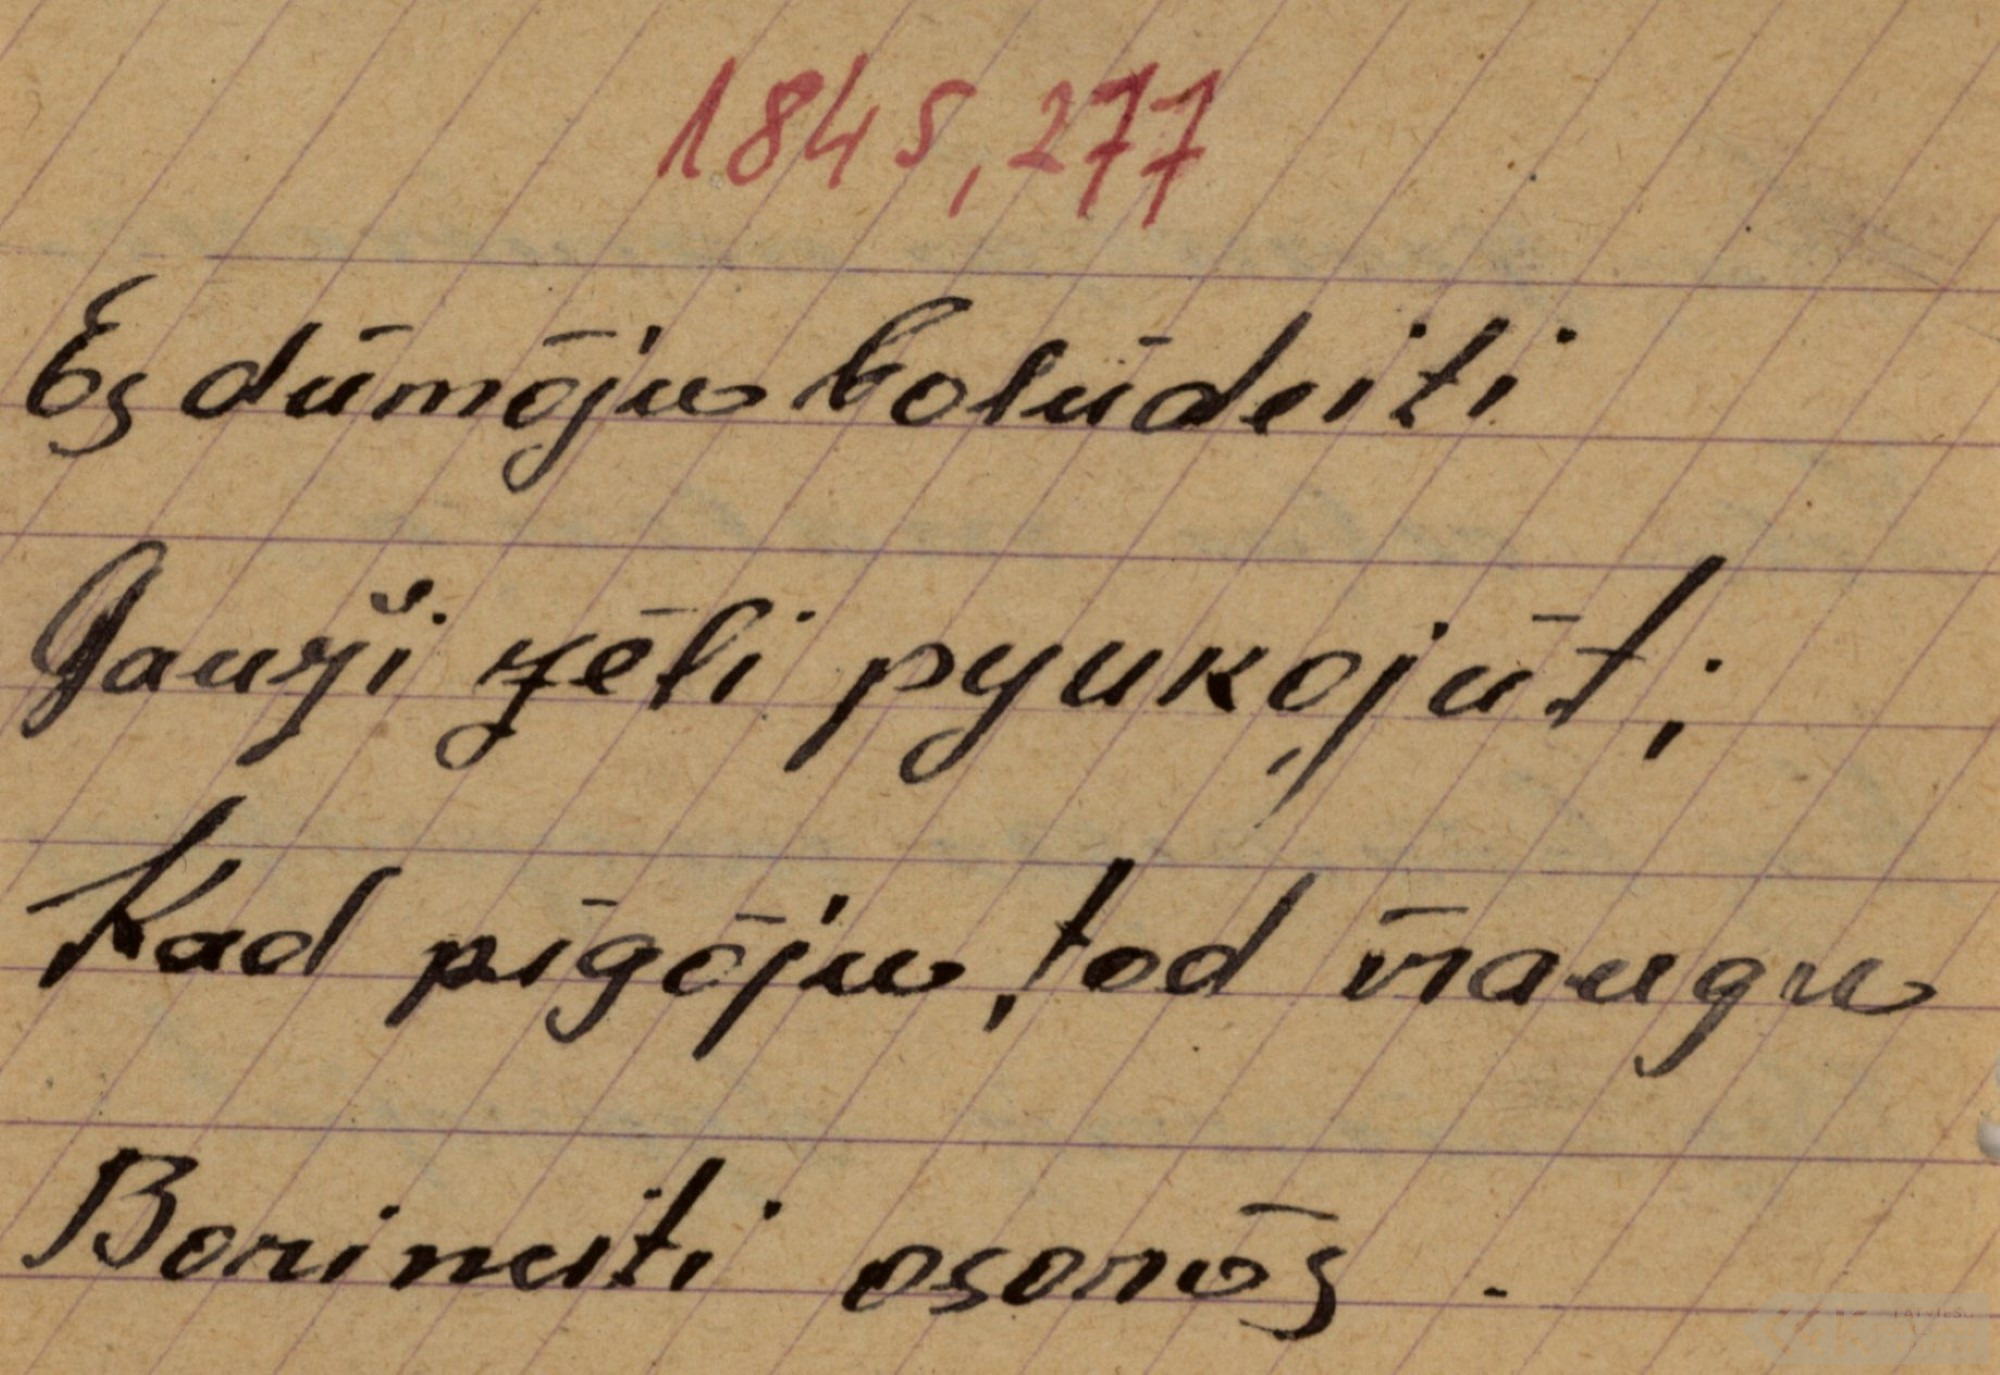 1845, 277
Es dūmōju bolūdeiti
Gauži zēli pyukojūt;
Kad pīgōju, tod īraugu
Borineiti osorōs .